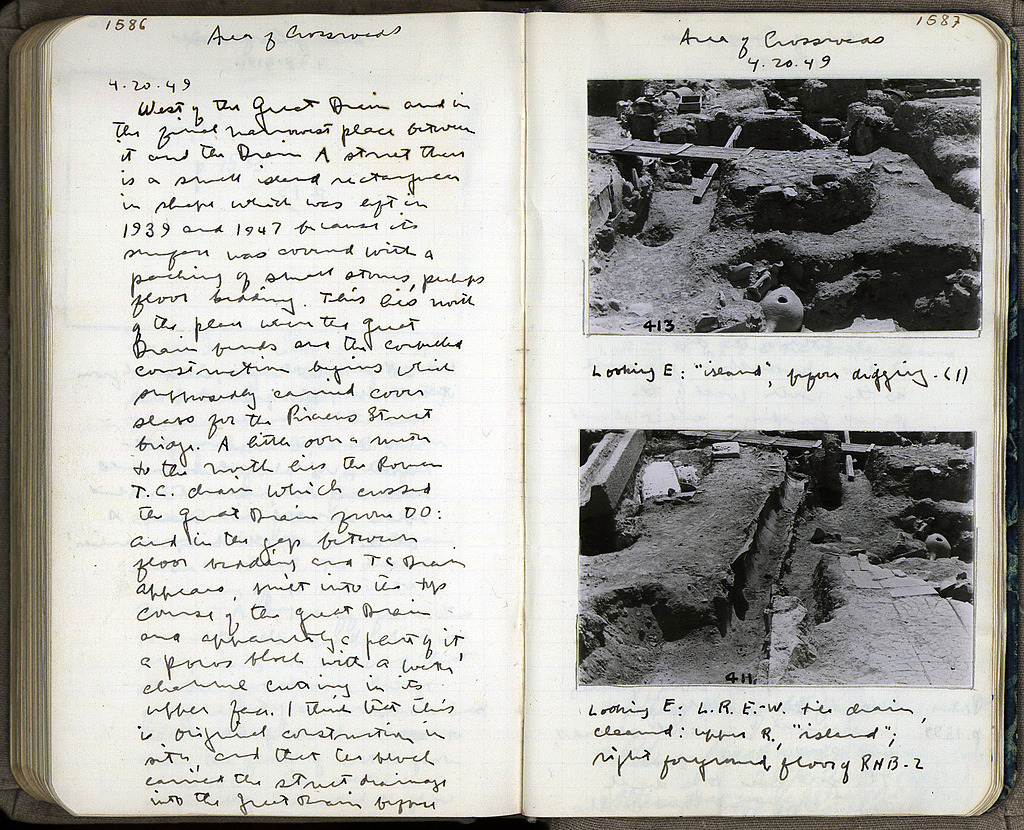 1586
Area of Crossroads
4.20.49
West of the Great Drain and in
the final narrowest place between
it and the Drain A street there
is a small island rectangular
in shape which was left in
1939 and 1947 because its
surface was covered with a
packing of small stones, perhaps
floor bedding. This lies north
of the place where the Great
Drain bends and the corbelled
construction begins which
supposedly carried cover
slabs for the Piraeus Street
bridge. A little over a meter
to the north lies the Roman
T.C. drain which crossed
the Great Drain from OO:
and in the gap between
floor bedding and TC Drain
appears, built into the top
course of the Great Drain
and apparently a part of it,
a poros block with a water
channel cutting in its
upper face. I think that this
is original construction in
situ, and that the block
carried the street drainage
into the Great Drain before
1587
Area of Crossroads
4.20.49
413
Looking E: "island", before digging. (1)
411
Looking E: L.R. E.-W. tile drain,
cleaned: upper R, "island";
right foreground, floor of RHB-2